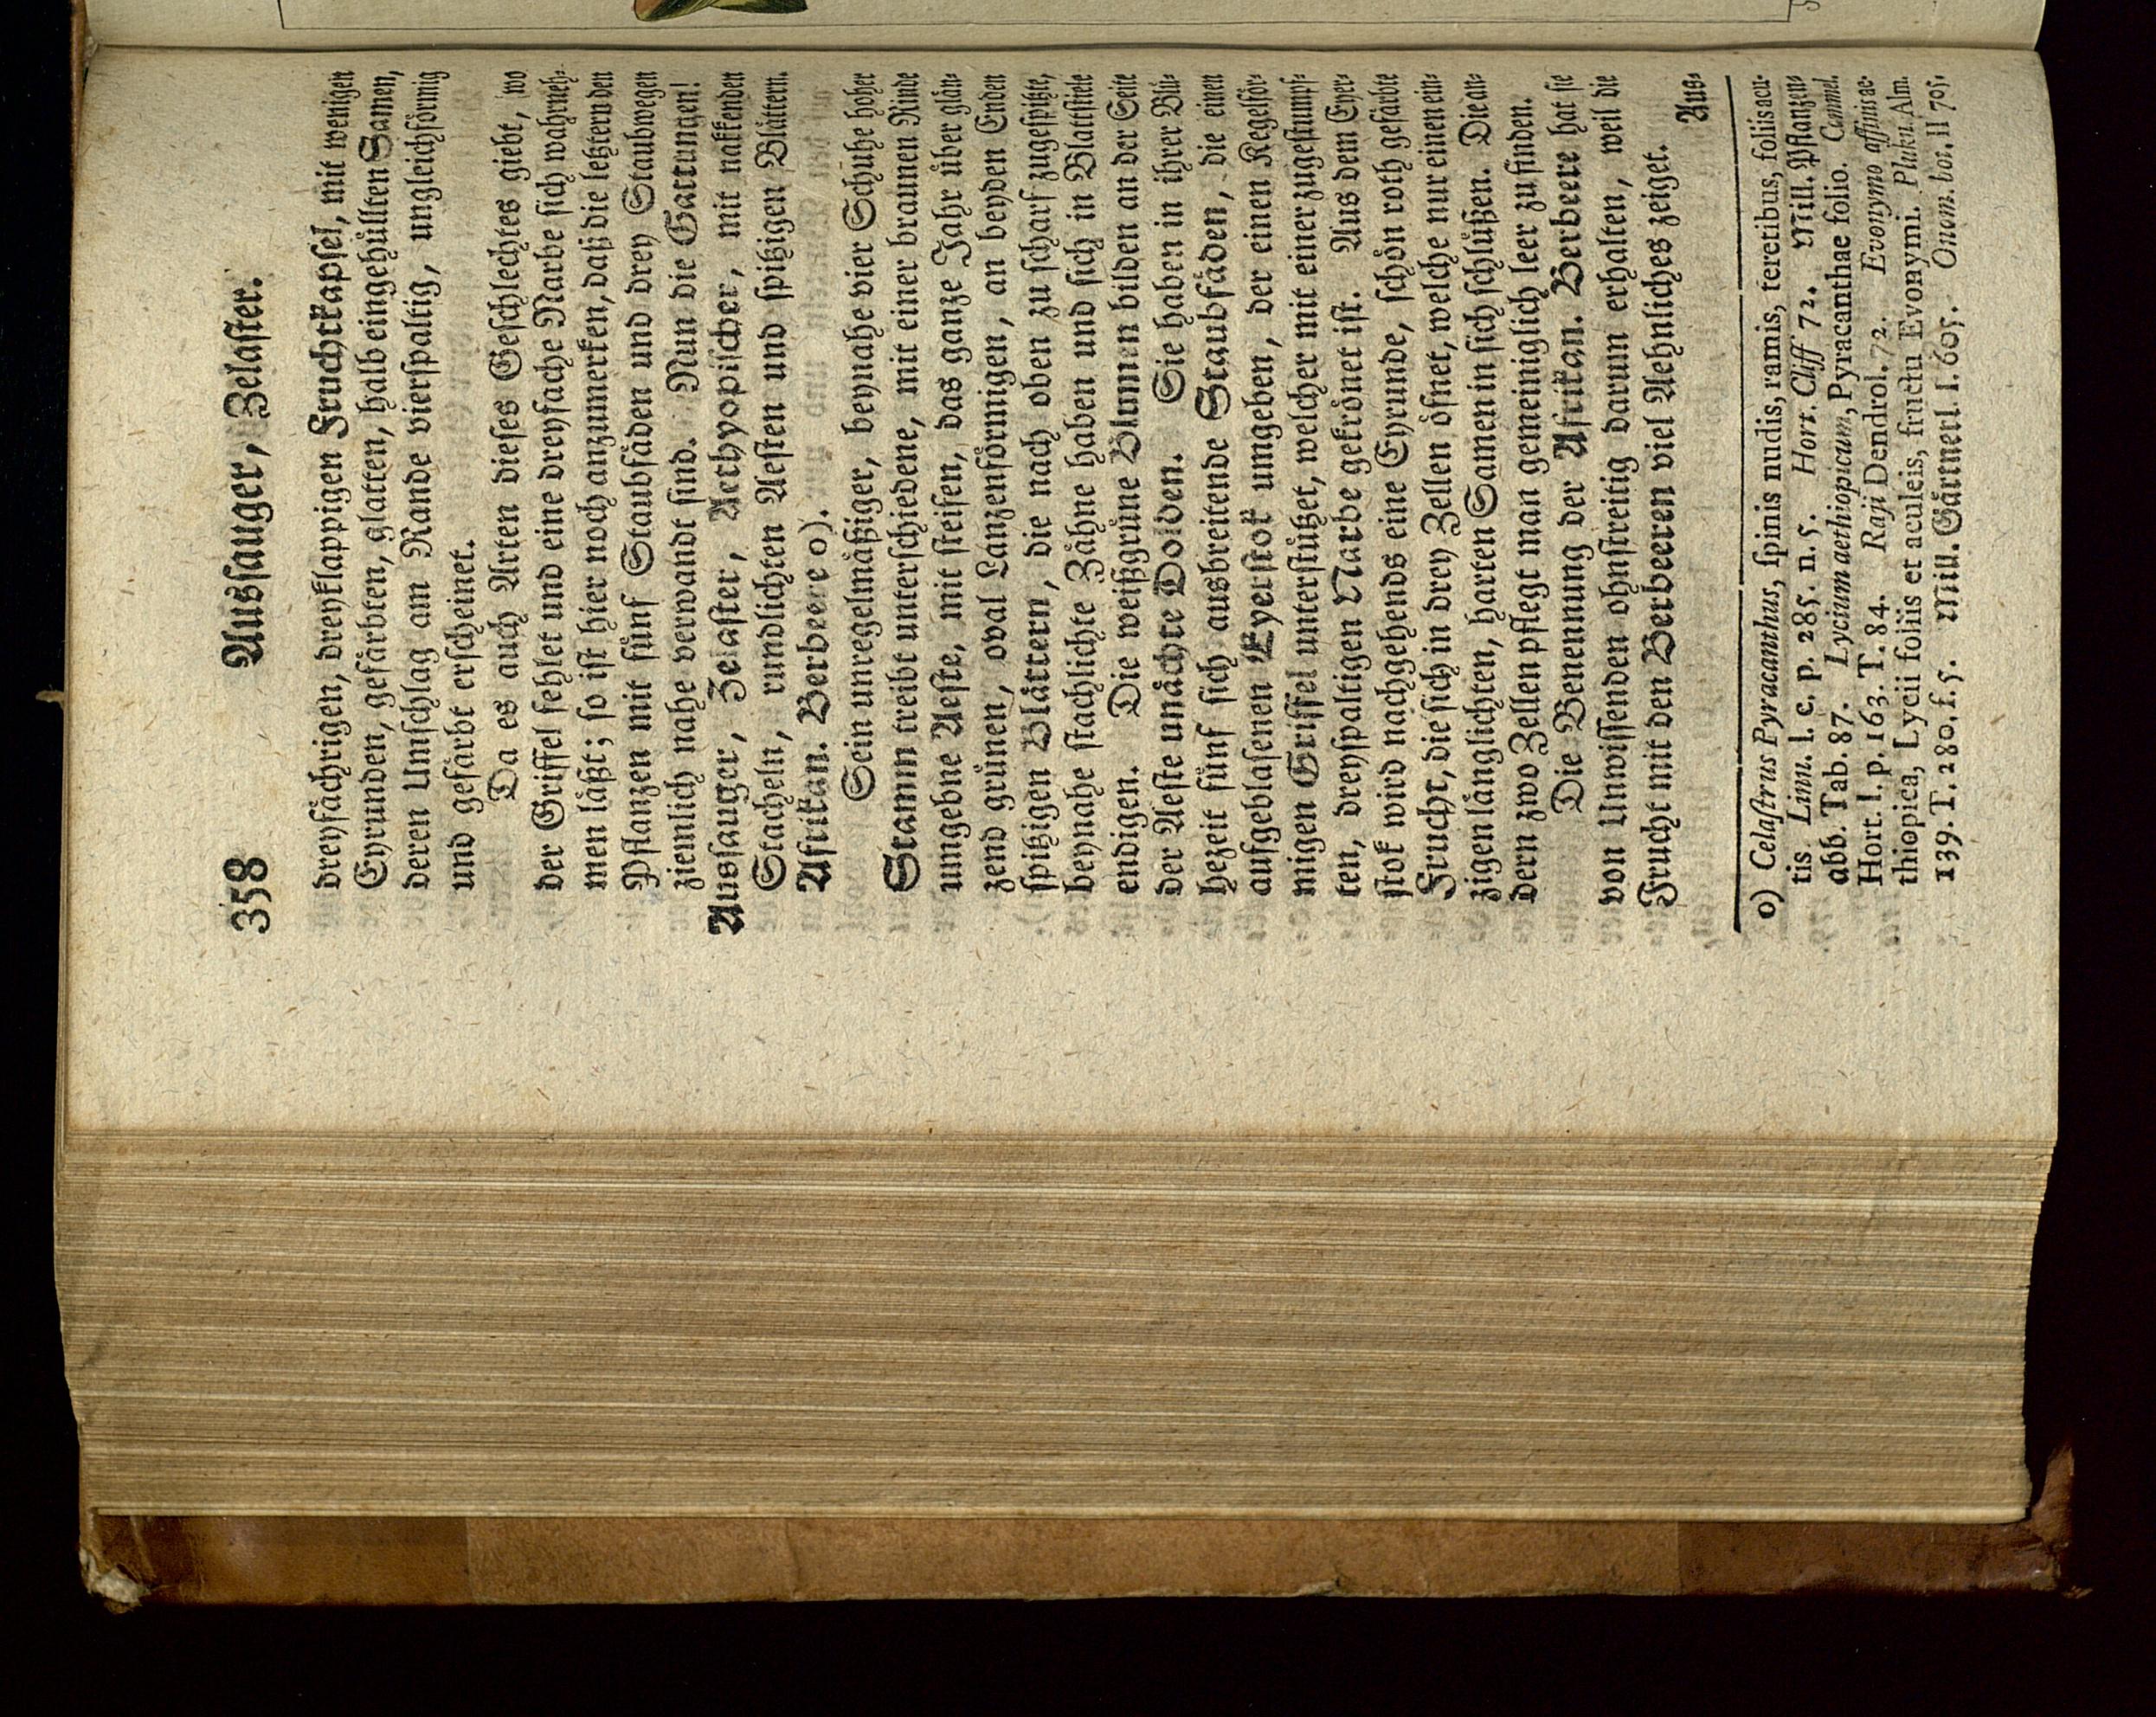 358 Aussauger, Zelaster.
dreyfächrigen, dreyklappigen Fruchtkapsel, mit wenigen
Eyrunden, gefärbten, glatten, halb eingehüllten Samen,
deren Umschlag am Rande vierspaltig, ungleichförmig
und gefärbt erscheinet.
Da es auch Arten dieses Geschlechtes giebt, wo
der Griffel fehlet und eine dreyfache Narbe sich wahrneh-
men läßt; so ist hier noch anzumerken, daß die letztern den
Pflanzen mit fünf Staubfäden und drey Staubwegen
ziemlich nahe verwandt sind. Nun die Gattungen!
Aussauger, Zelaster, Aethyopischer, mit nakkenden
Stacheln, rundlichten Aesten und spitzigen Blättern.
Afrikan. Berbeere o).
Sein unregelmäßiger, beynahe vier Schuhe hoher
Stamm treibt unterschiedene, mit einer braunen Rinde
umgebne Aeste, mit steifen, das ganze Jahr über glän-
zend grünen, oval Lanzenförmigen, an beyden Enden
spitzigen Blättern, die nach oben zu scharf zugespitzte,
beynahe stachlichte Zähne haben und sich in Blattstiele
endigen. Die weißgrüne Blumen bilden an der Seite
der Aeste unächte Dolden. Sie haben in ihrer Blü-
hezeit fünf sich ausbreitende Staubfäden, die einen
aufgeblasenen Eyerstok umgeben, der einen Kegelför-
migen Griffel unterstützet, welcher mit einer zugestumpf-
ten, dreyspaltigen Narbe gekrönet ist. Aus dem Eyer-
stok wird nachgehends eine Eyrunde, schön roth gefärbte
Frucht, die sich in drey Zellen öfnet, welche nur einen ein-
zigen länglichten, harten Samen in sich schlüßen. Die an-
dern zwo Zellen pflegt man gemeiniglich leer zu finden.
Die Benennung der Afrikan. Berbeere hat sie
von Unwissenden ohnstreitig darum erhalten, weil die
Frucht mit den Berbeeren viel Aehnliches zeiget.
Aus-
o) Celastrus Pyracanthus, spinis nudis, ramis, teretibus, foliis acu-
tis Linn. l. c. p. 285. n. 5. Hort. Cliff 72. Mill. Pflanzen-
abb. Tab. 87. Lycium aethiopicum, Pyracanthae folio. Commel.
Hort. I. p. 163. T. 84. Raji Dendrol. 72. Evonymo affinis ae-
thiopica, Lycii foliis et aculeis, fructu Evonymi. Plukn. Alm.
139. T. 280. f. 5. Mill. Gärtnerl. I. 605. Onom. bot. II 705.